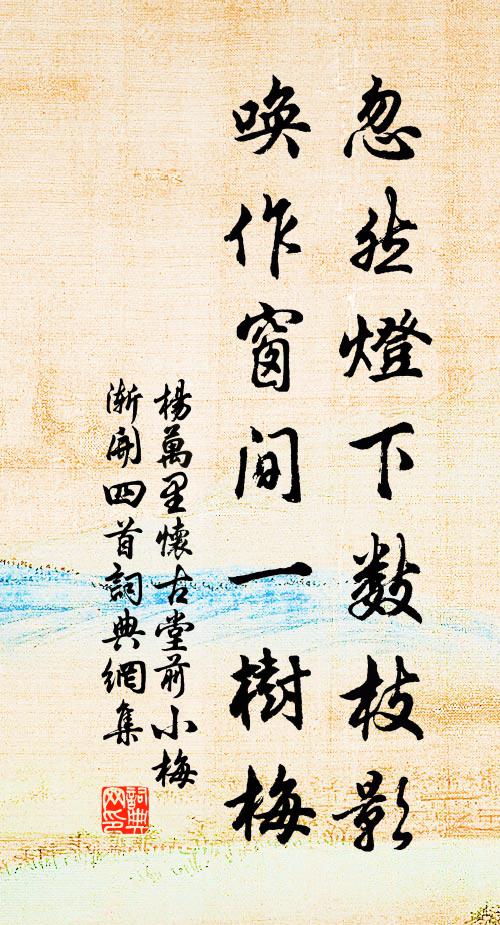 忽然燈下數枝影
喚作窗間一樹梅
楊萬里懷古堂前小梅
漸開四首詞典網集
詞典
网印